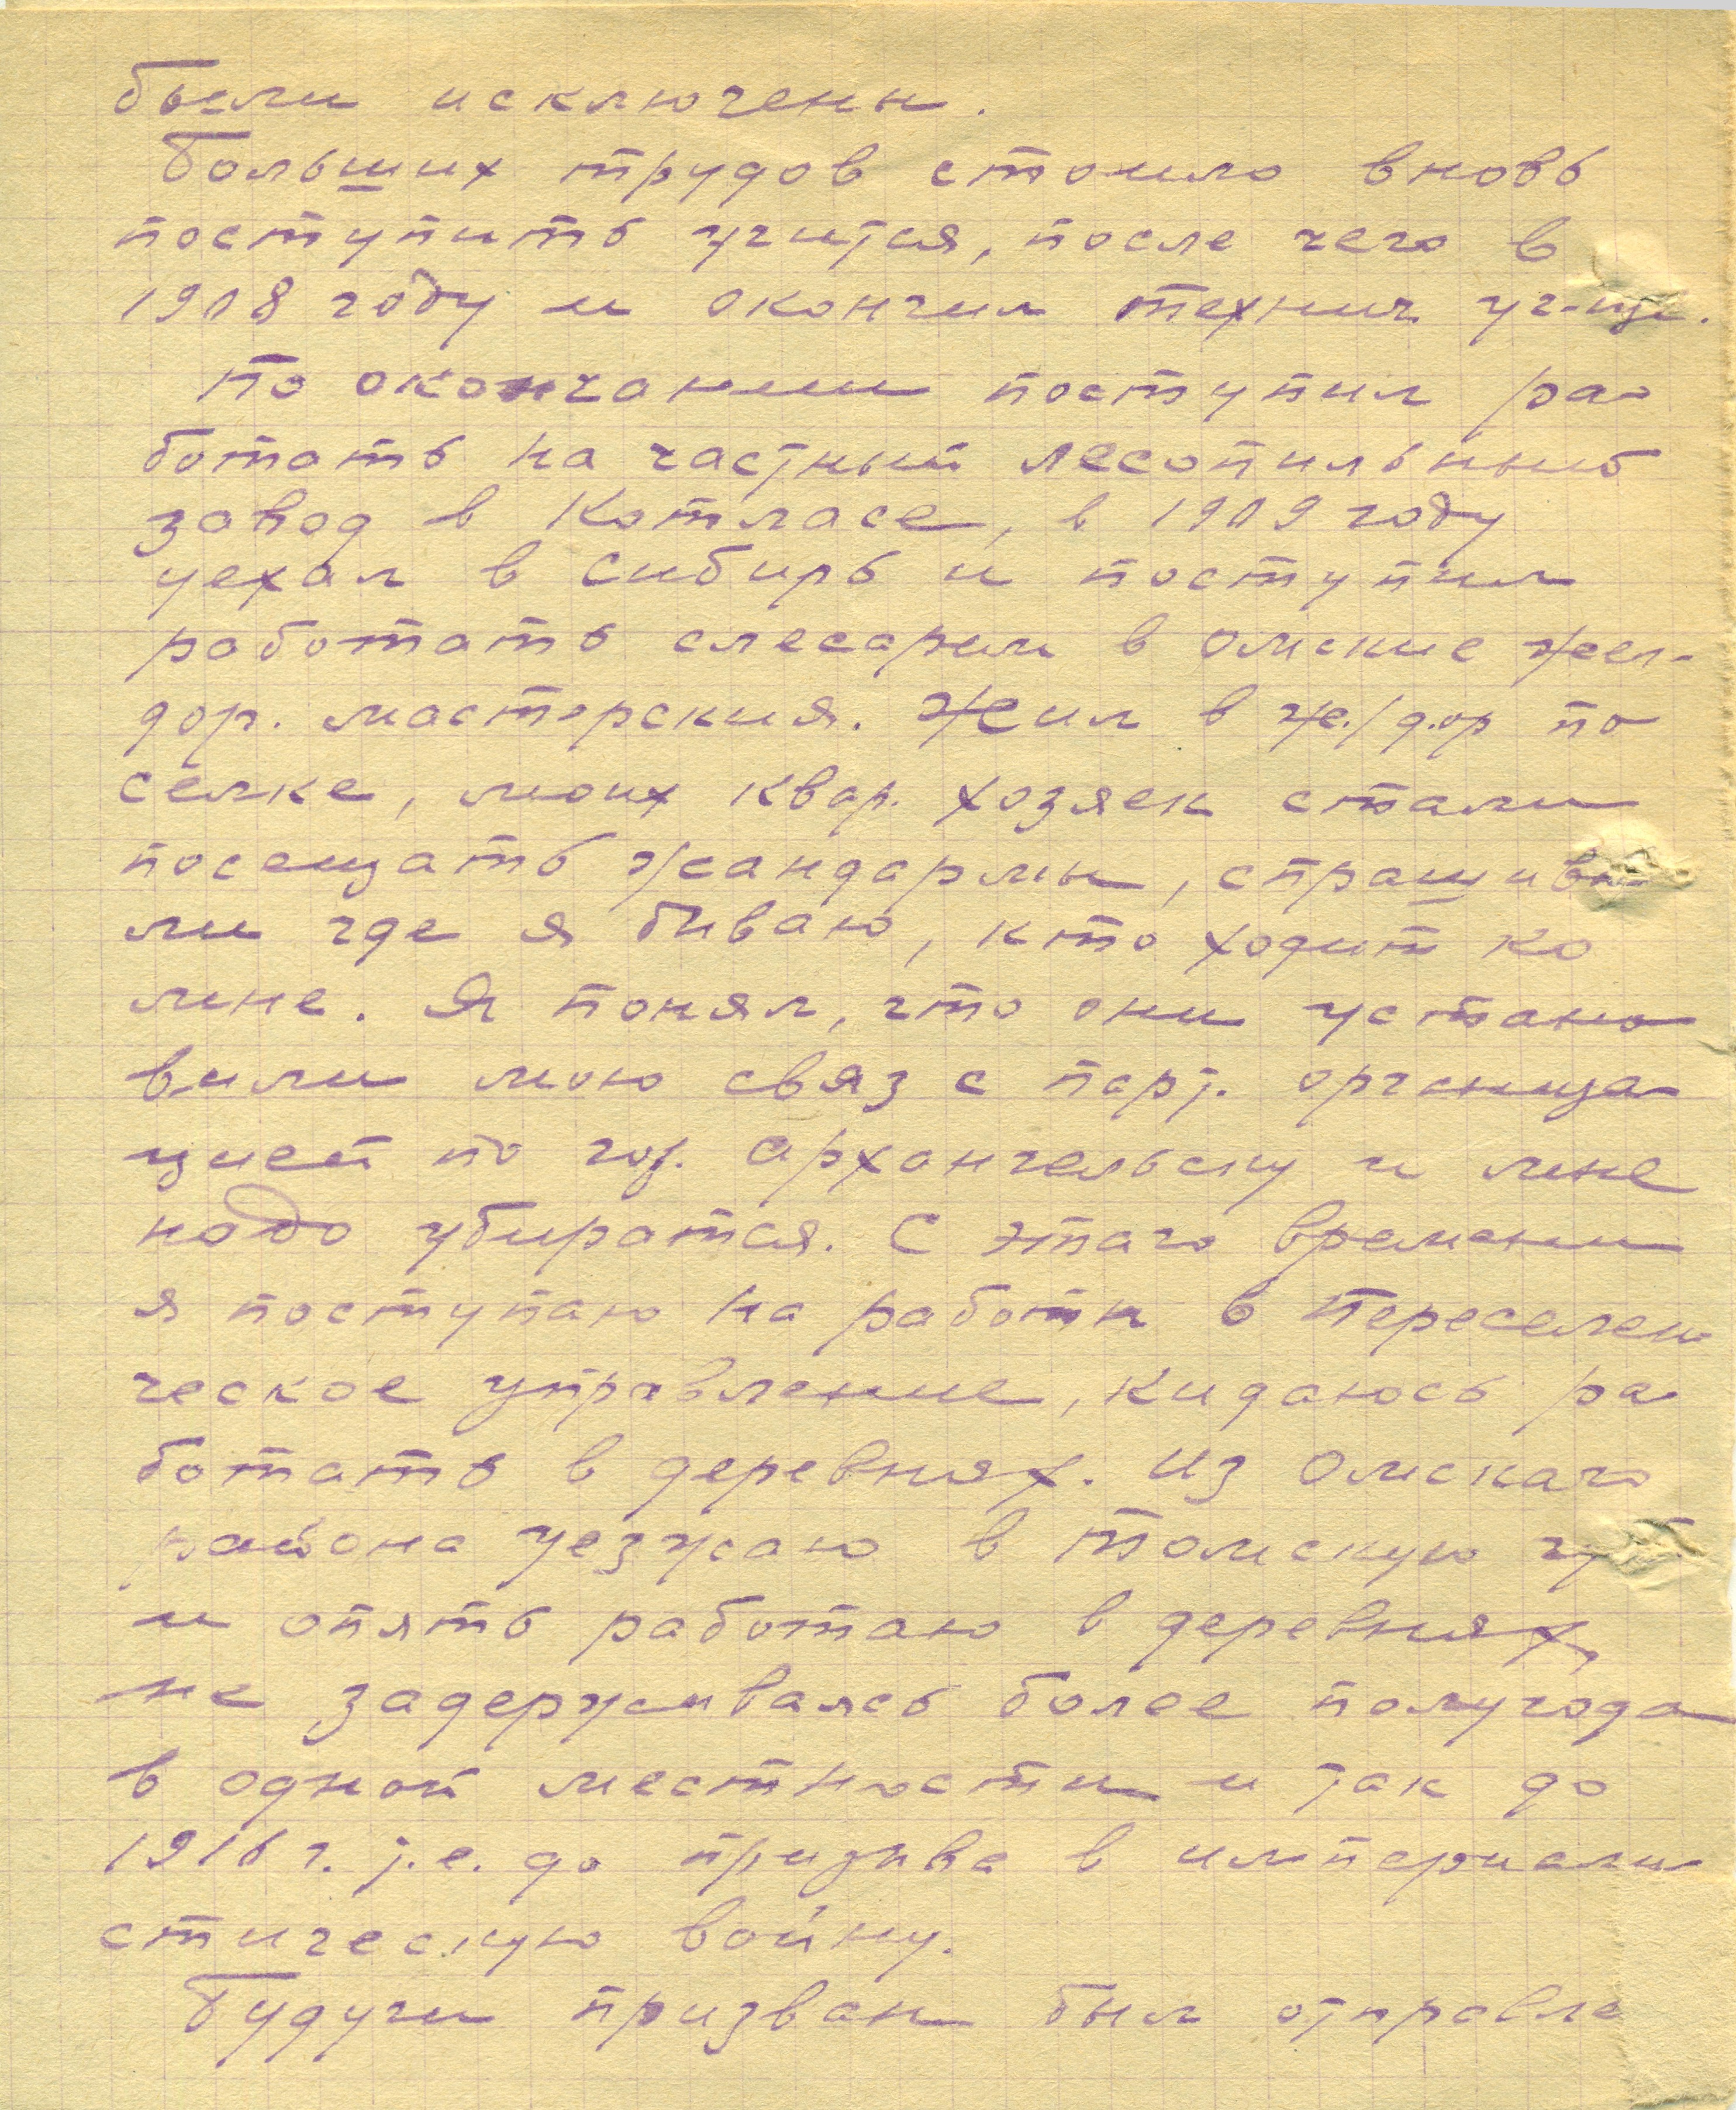 были исключены.
Больших трудов стоило вновь
поступить учится, после чего в
1908 году и окончил технич. уч-ще.
По окончании поступил ра-
ботать на частный лесопильный
завод в Котласе, в 1909 году
уехал в Сибирь и поступил
работать слесарем в Омские жел-
дор. мастерския. Жил в же./дор по
селке, моих квар. хозяек стали
посещать жандармы, спрашива-
ли где я бываю, кто ходит ко
мне. Я понял, что они устано
вили мою связ с парт. организа-
цией по гор. Архангельску и мне
надо убиратся. С этаго времени
я поступаю на работы в Переселен-
ческое управление, кидаюсь ра
ботать в деревнях. Из Омскаго
района уезжаю в Томскую губ
и опять работаю в деревнях,
не задерживаясь более полугода
в одной местности и так до
1916 г. т.е. до призыва в империали-
стическую войну.
Будучи призван был отправле